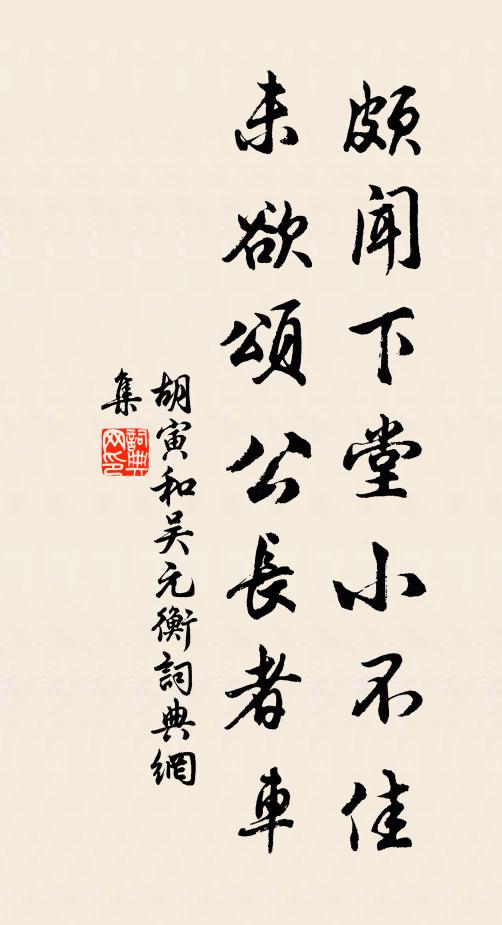 頗聞下堂小不佳
未欲頌公長者車
胡寅和吴元衡詞典網
集
詞典
网印